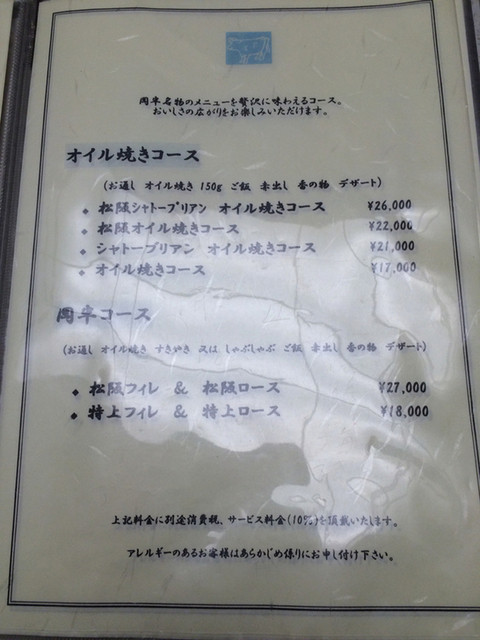 岡半名物のメニューを贅沢に味わえるコース。
おいしさの広がりをお楽しみいただけます。
オイル焼きコース
(お通し オイル焼き 150g ご飯 赤出し 香の物 デザート)
◆ 松阪シャトーブリアン オイル焼きコース ¥26,000
◆ 松阪オイル焼きコース ¥22,000
◆ シャトーブリアン オイル焼きコース ¥21,000
◆ オイル焼きコース ¥17,000
岡半コース
(お通し オイル焼き すきやき 又は しゃぶしゃぶ ご飯 赤出し 香の物 デザート)
◆ 松阪フィレ & 松阪ロース ¥27,000
◆ 特上フィレ & 特上ロース ¥18,000
上記料金に別途消費税、サービス料金(10%)を頂戴いたします。
アレルギーのあるお客様はあらかじめ係りにお申し付け下さい。